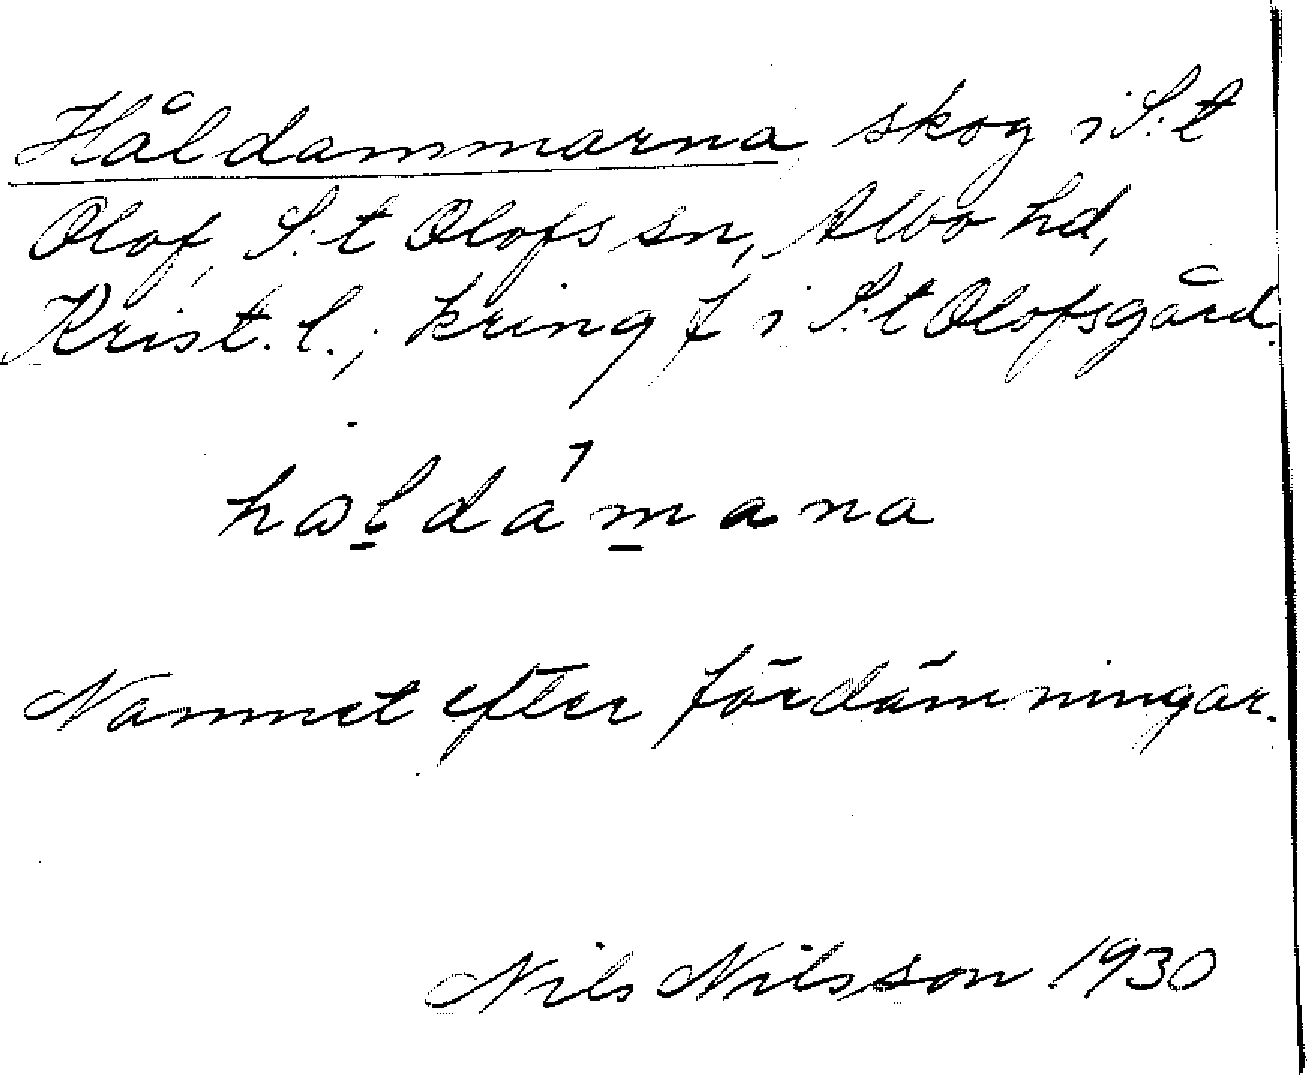 Håldammarna, skog i S:t
Olof, S:t Olofs sn, Albo hd,
Krist. l.; kring f i S:t Olofsgård.
haldámana
Namnet efter fördämningar.
Nils Nilsson 1930